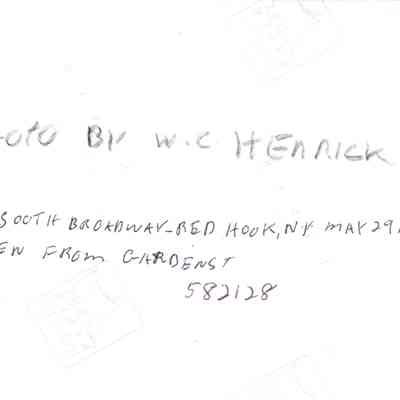 OTO BY W.C. HENRICK
SOUTH BROADWAY-RED HOOK, NY MAY 29
EN FROM GARDENST
582128